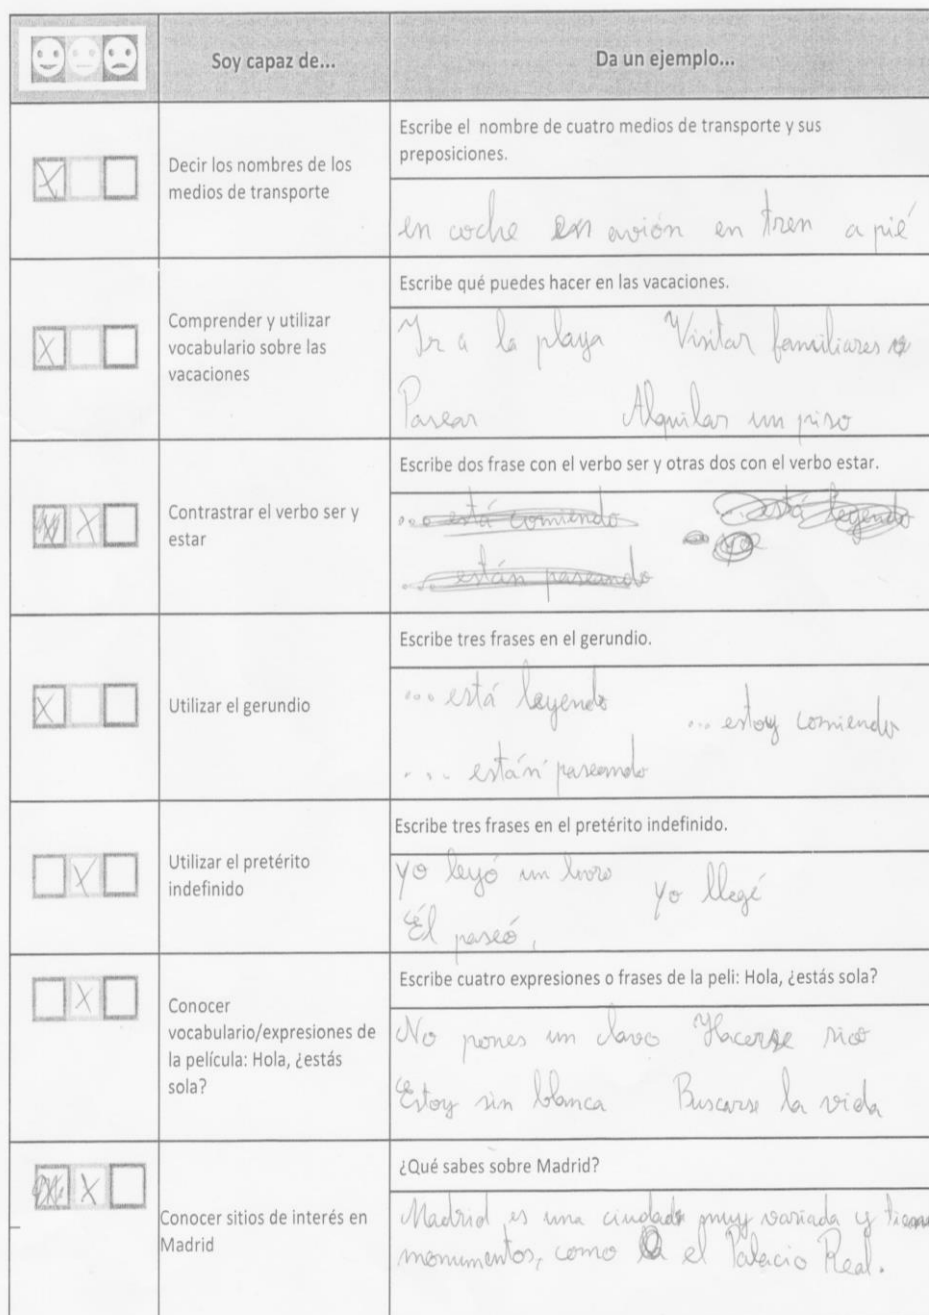 Soy capaz de...
Da un ejemplo...
Decir los nombres de los
medios de transporte
Escribe el nombre de cuatro medios de transporte y sus
preposiciones.
en coche en avión en tren a pié
Comprender y utilizar
vocabulario sobre las
vacaciones
Escribe qué puedes hacer en las vacaciones.
Ir a la playa Visitar familiares
Pasear Alquilar un piso
Contrastrar el verbo ser y
estar
Escribe dos frase con el verbo ser y otras dos con el verbo estar.
... está comiendo ... está legendo
... están paseando
Utilizar el gerundio
Escribe tres frases en el gerundio.
... está leyendo
... estoy comiendo
... están paseando
Utilizar el pretérito
indefinido
Escribe tres frases en el pretérito indefinido.
yo leyó un livro yo llegé
Él paseó,
Conocer
vocabulario/expresiones de
la película: Hola, ¿estás
sola?
Escribe cuatro expresiones o frases de la peli: Hola, ¿estás sola?
No pones un clavo Hacerse rico
Estoy sin blanca Buscarse la vida
Conocer sitios de interés en
Madrid
¿Qué sabes sobre Madrid?
Madrid es una ciudade muy variada y tiene
monumentos, como el Palacio Real.